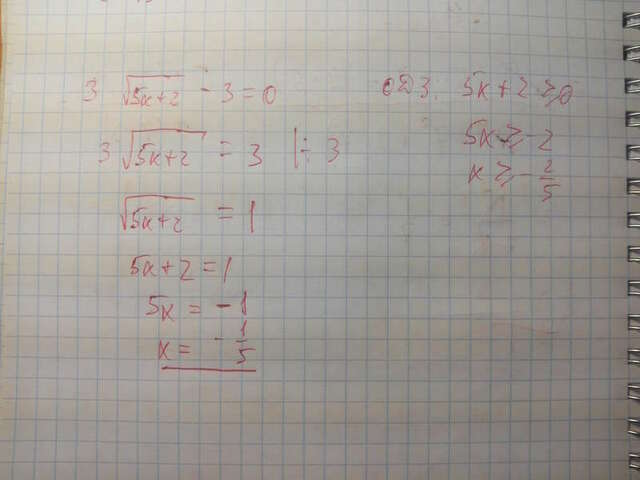 3 √5x+2 - 3 = 0
3 √5x+2 = 3 | ÷ 3
√5x+2 = 1
5x+2 = 1
5x = -1
x = -1/5
ОДЗ: 5x+2 ≥ 0
5x ≥ -2
x ≥ -2/5